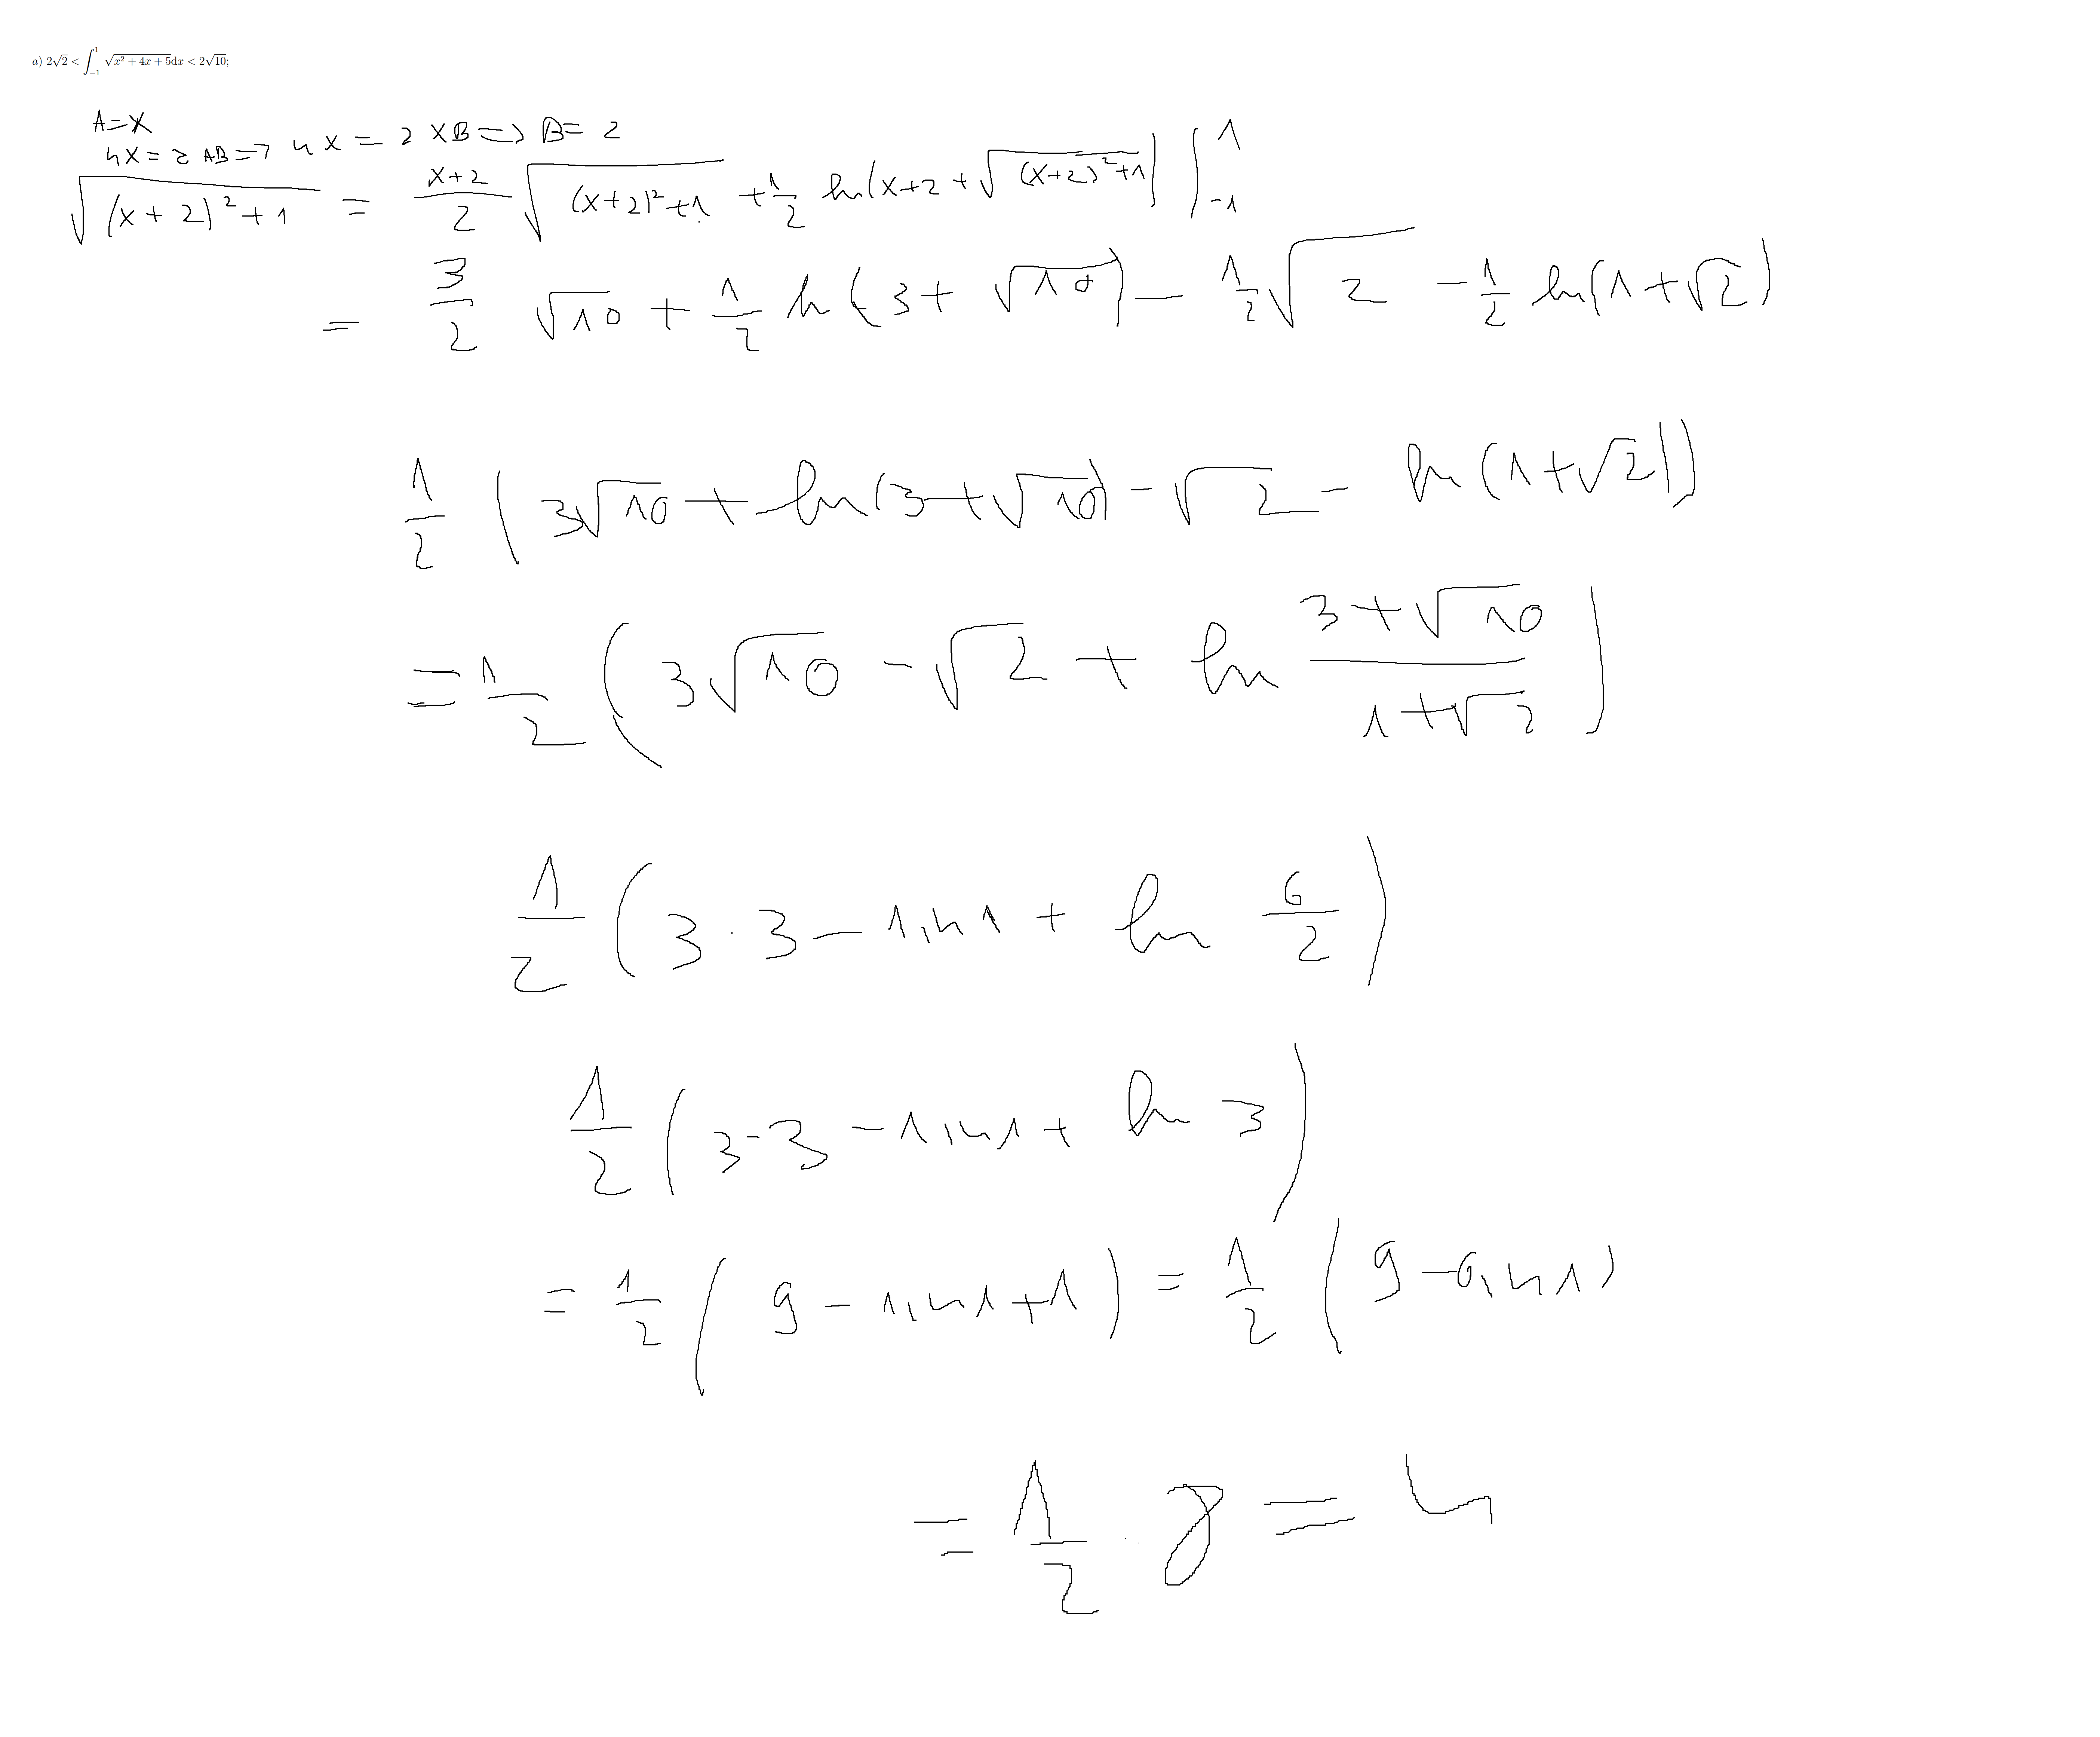 a) 2√2 < ∫₋₁¹ √(x² + 4x + 5)dx < 2√10;
A = x
4x = 2AB => 4x = 2xB => B = 2
√((x+2)²+1) = (x+2)/2 √((x+2)²+1) + 1/2 ln(x+2+√((x+2)²+1)) |₋₁¹
= 3/2 √10 + 1/2 ln(3+√10) - 1/2 √2 - 1/2 ln(1+√2)
1/2 (3√10 + ln(3+√10) - √2 - ln(1+√2))
= 1/2 (3√10 - √2 + ln (3+√10)/(1+√2))
1/2 (3·3 - 1,41 + ln 6/2)
1/2 (3·3 - 1,41 + ln 3)
= 1/2 (9 - 1,41 + 1) = 1/2 (9 - 0,41)
= 1/2 · 8 = 4